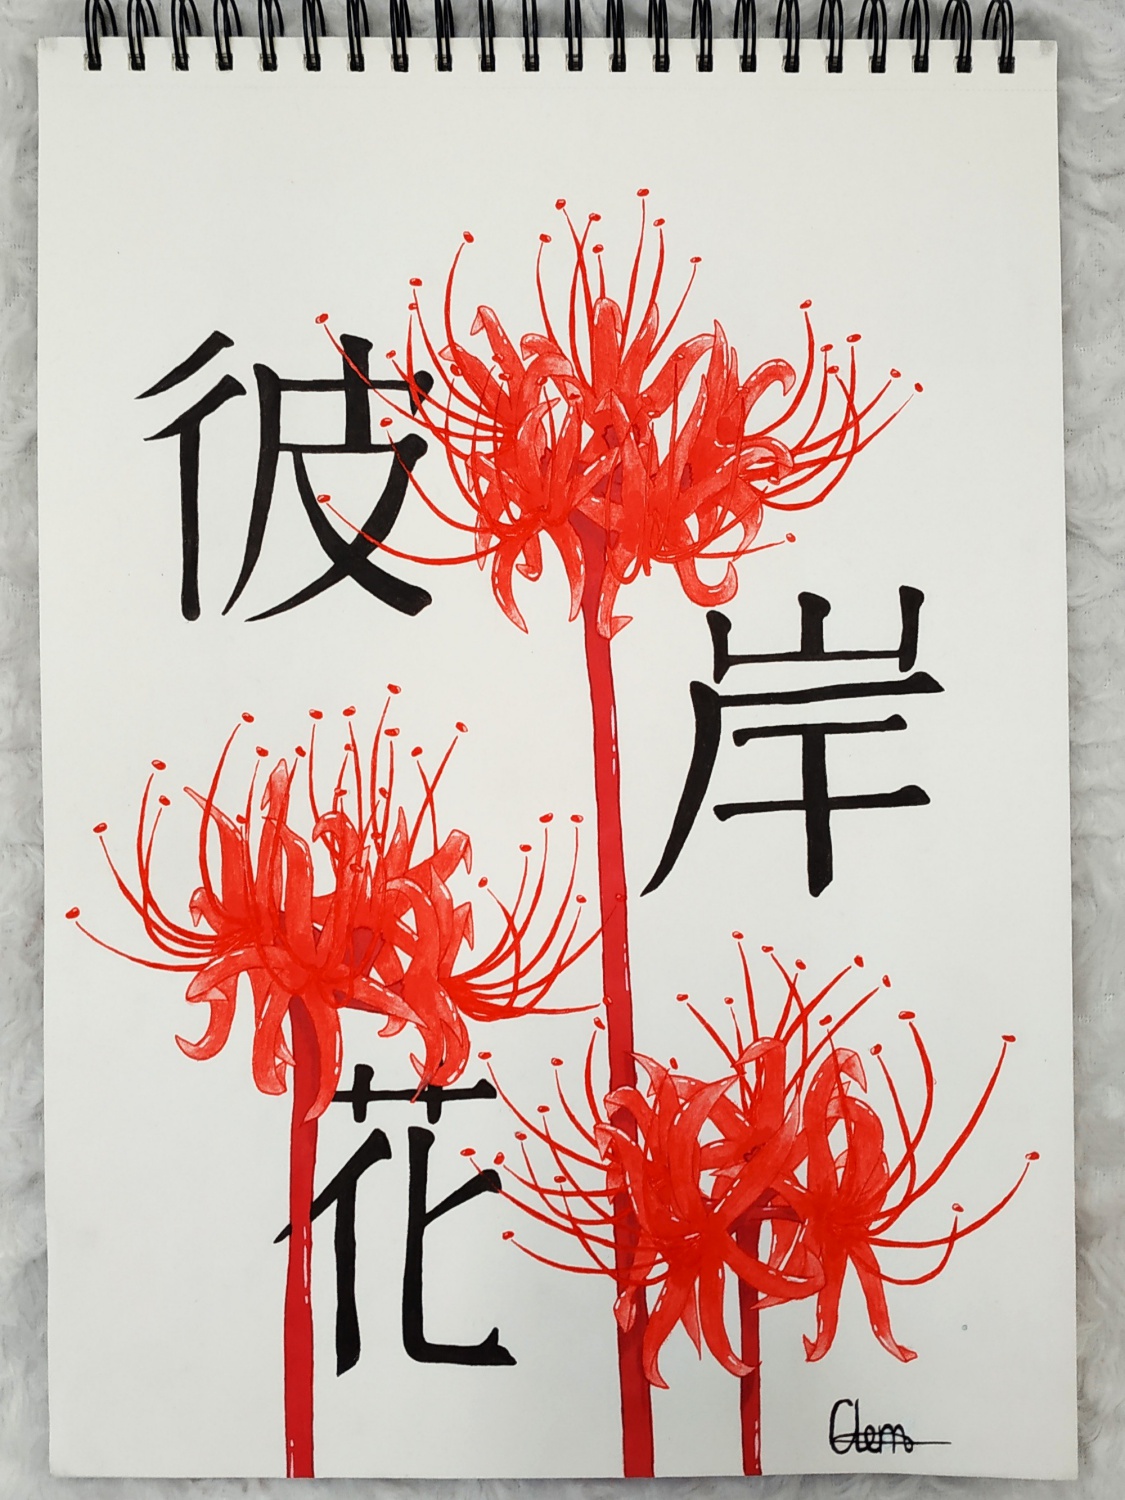 彼
岸
花
Clem